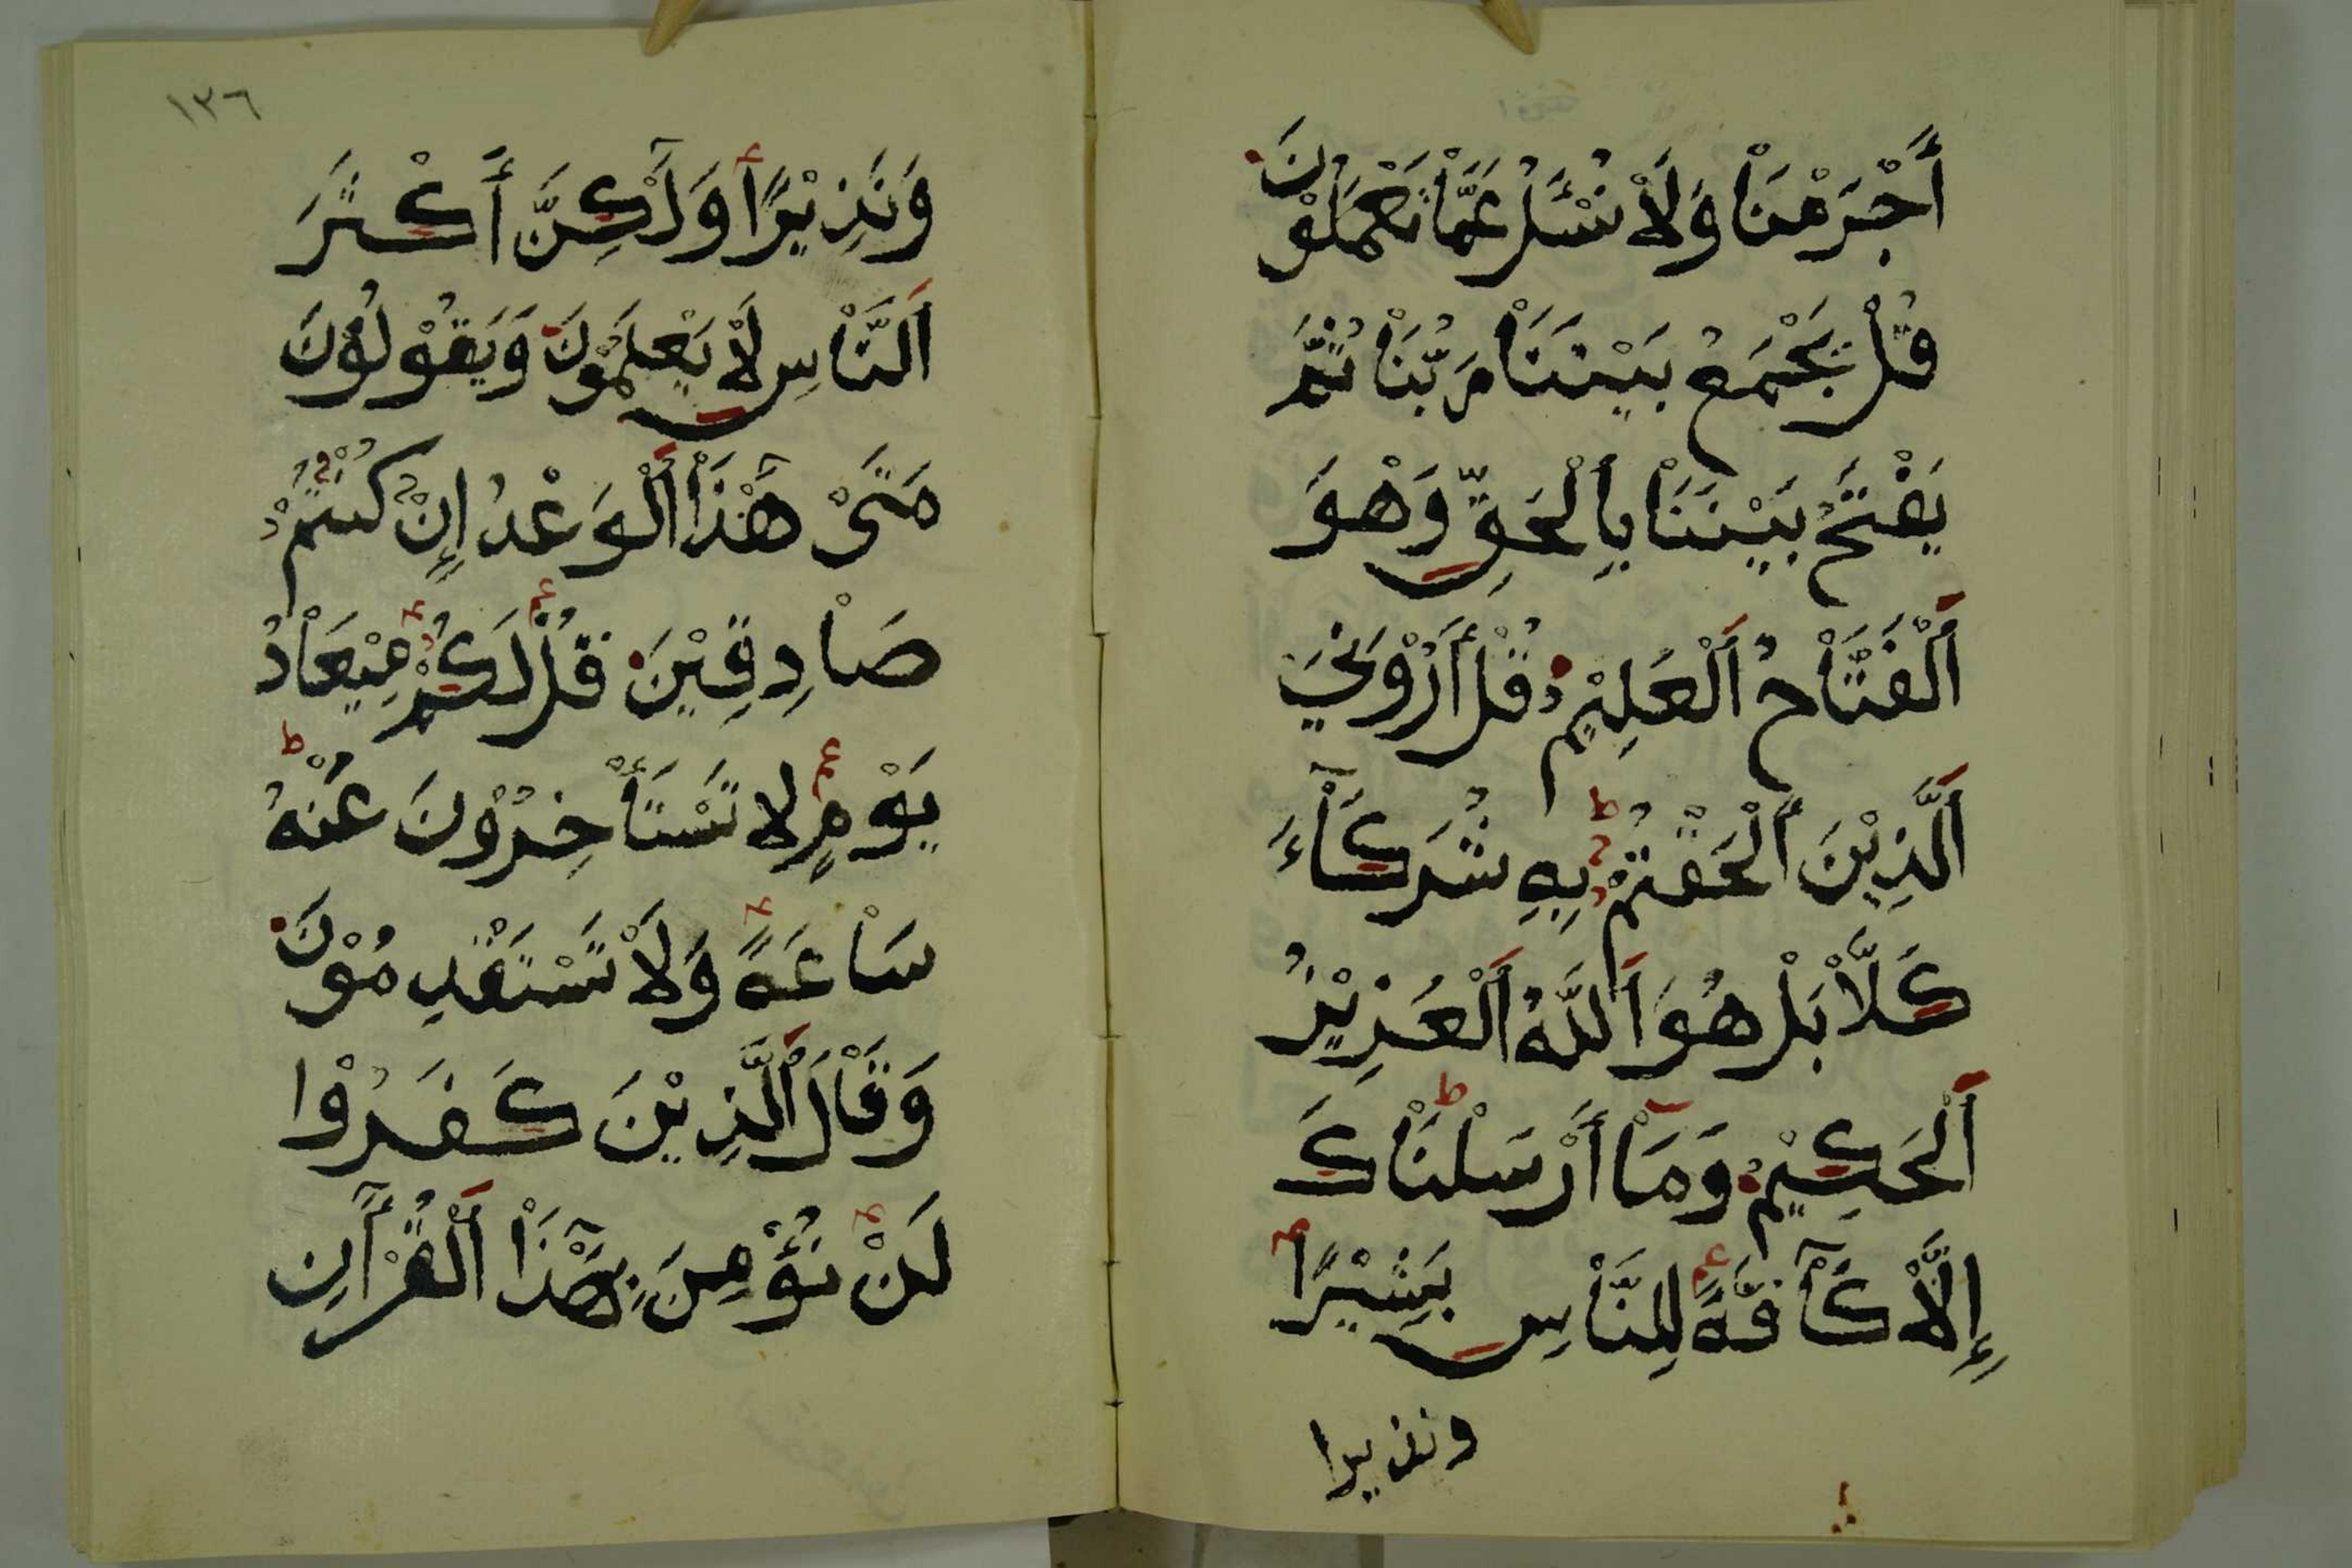 أَجْرَمْنَا وَلَا نُسْئَلُ عَمَّا تَعْمَلُونَ
قُلْ يَجْمَعُ بَيْنَنَا رَبُّنَا ثُمَّ
يَفْتَحُ بَيْنَنَا بِالْحَقِّ وَهْوَ
اَلْفَتَّاحُ اَلْعَلِيْمُ قُلْ أَرُوْنِيَ
اَلَّذِيْنَ أَلْحَقْتُمْ بِهِ شُرَكَآءَ
كَلَّا بَلْ هُوَ اَللَّهُ اَلْعَزِيْزُ
اَلْحَكِيْمُ وَمَا أَرْسَلْنَاكَ
إِلَّا كَآفَّةً لِلنَّاسِ بَشِيْرًا
ونذيرا
١٣٦
وَنَذِيْرًا وَلَٰكِنَّ أَكْثَرَ
اَلنَّاسِ لَا يَعْلَمُوْنَ وَيَقُوْلُوْنَ
مَتَىْ هَٰذَا اَلْوَعْدُ إِنْ كُنْتُمْ
صَادِقِيْنَ قُلْ لَكُمْ مِيْعَادُ
يَوْمٍ لا تَسْتَأْخِرُوْنَ عَنْهُ
سَاعَةً وَلَا تَسْتَقْدِمُوْنَ
وَقَالَ اَلَّذِيْنَ كَفَرُوْا
لَنْ نُؤْمِنَ بِهَٰذَا اَلْقُرْآنِ